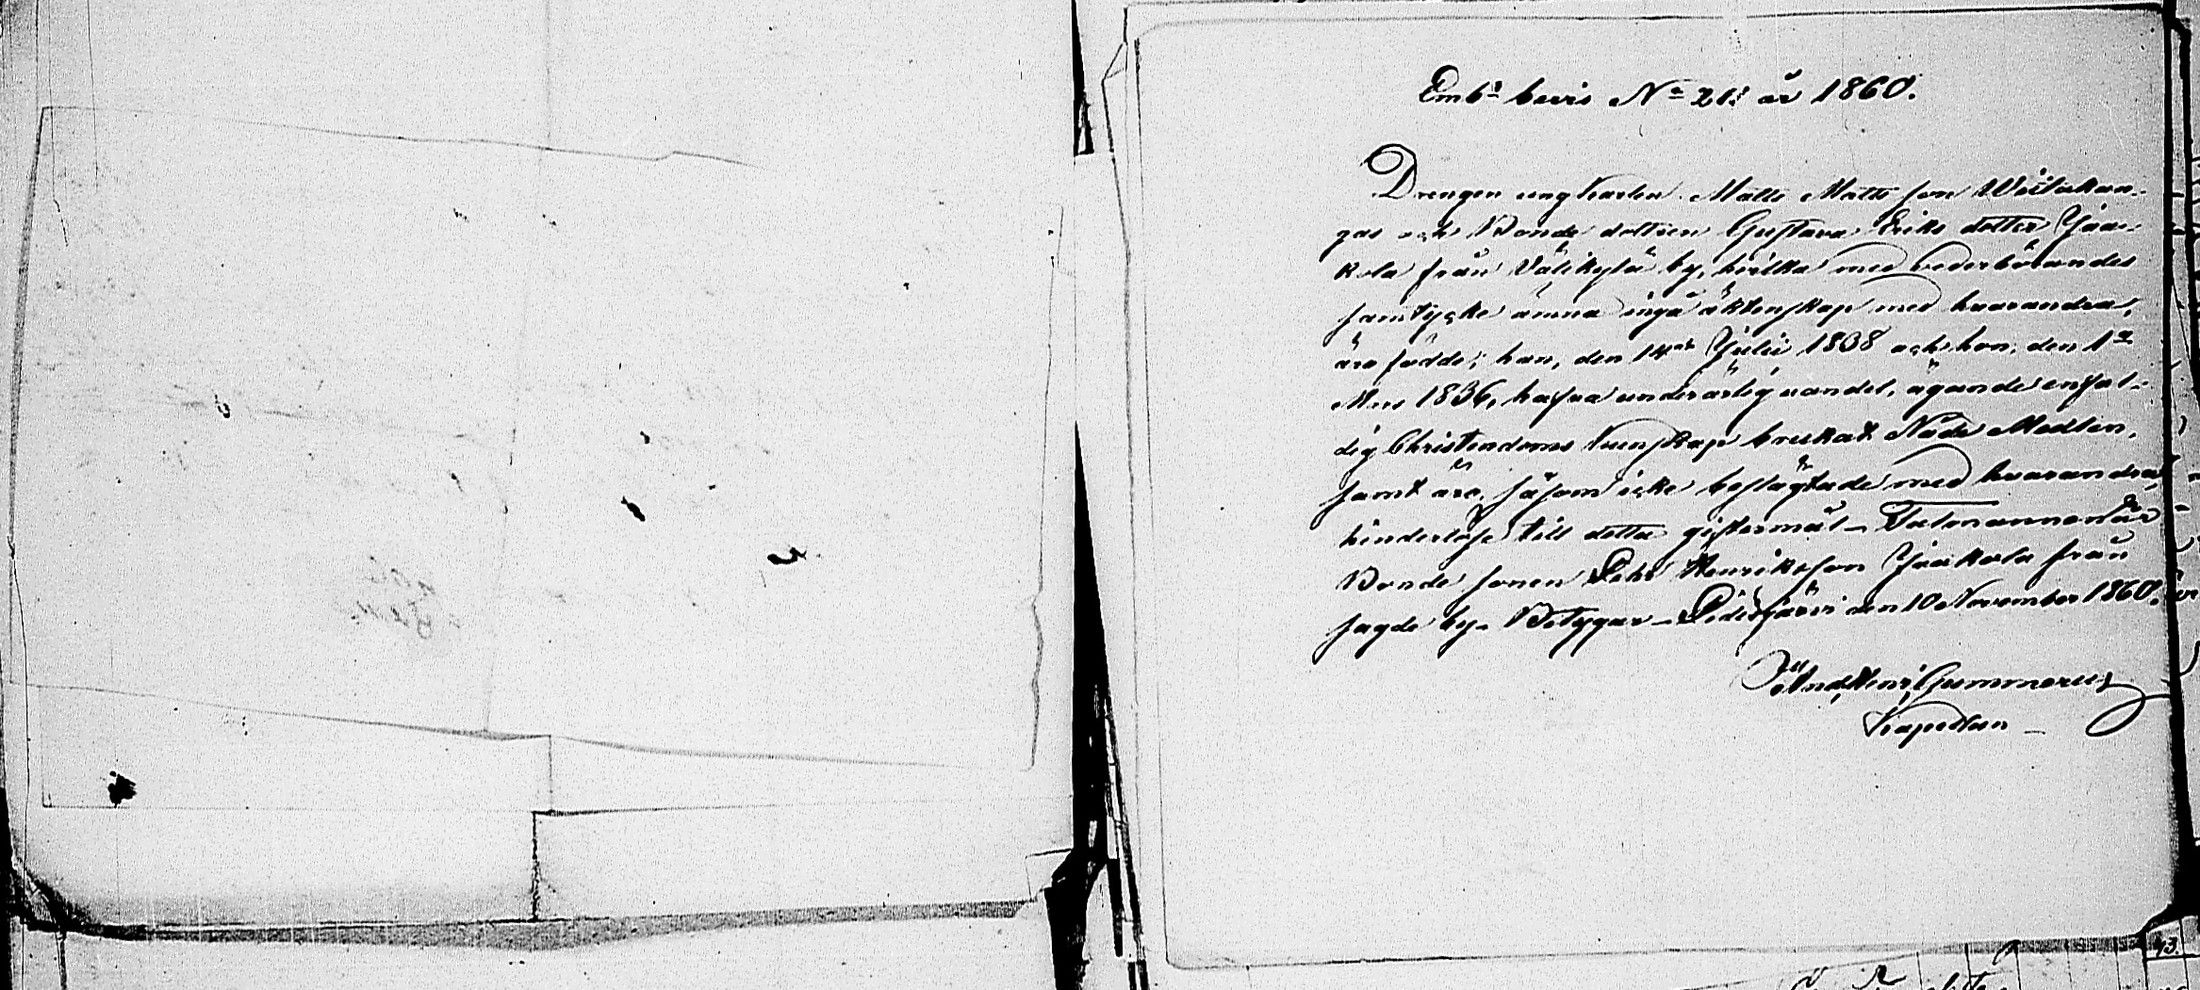 Embs bevis No 21: år 1860.
Drengen ungkarlen Matts Matts son Wiitakan-
gas och Bonde dottren Gustava Eriks dotter Jaa-
kola från Välikylä by, hvilka med vederbörandes
samtycke ämna ingå äktenskap med hvarandra,
äro födde; han, den 14de Julii 1838 och hon, den 1a
1836, hafva underärlig vandel, ägande enfal-
dig Christendoms kunskap brukat Nåde Medlen,
samt äro, såsom icke beslägtade med hvarandra,
hinderlöse till detta giftermål – Talmannen är
Bonde sonen Pehr Henriksson Jaakola från
sagde by. Betygar – Pidisjärvi den 10 November 1860.
And. Henr. Gummerus
Kapellan –
43.